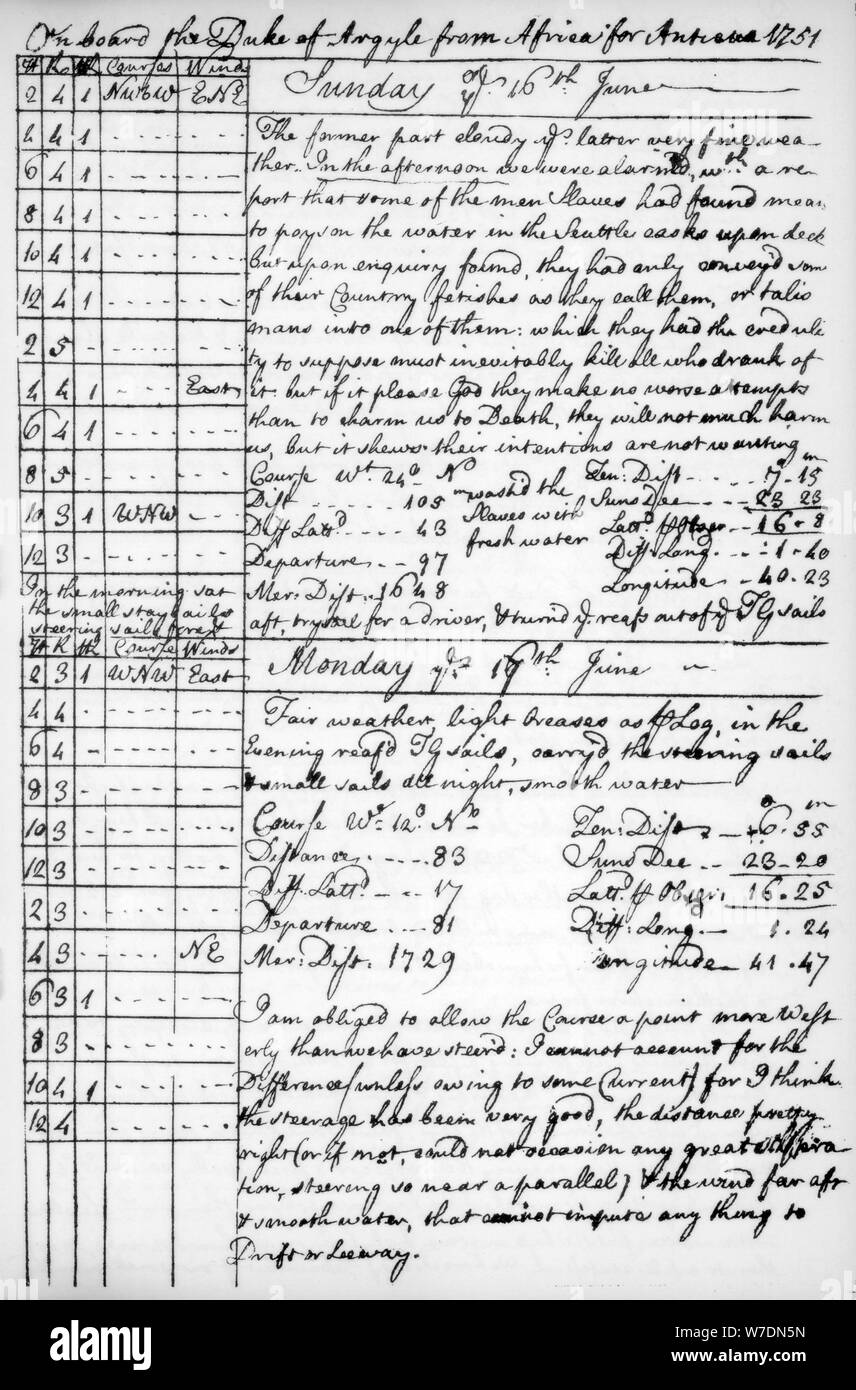 On board the Duke of Argyle from Africa for Antigua 1751
H K HK Courses Winds
Sunday ye 16th June
2 4 1 NWbW ENE
4 4 1
The former part cloudy ye. latter very fine wea-
6 4 1
ther. In the afternoon we were alarm'd, wth a re-
port that some of the men Slaves had found mean
8 4 1
to poyson the water in the Scuttle casks upon deck
10 4 1
but upon enquiry found, they had only convey'd som
12 4 1
of their Country fetishes as they call them, or talis
mans into one of them: which they had the creduli
2 5
ty to suppose must inevitably kill all who drank of
4 4 1 East
it. but if it please God they make no worse atempts
6 4 1
than to charm us to Death, they will not much harm
us, but it shews their intentions are not wanting
8 5
Course Wt. 24° No Zen: Dist 7.15
Dist 105 m wash'd the Suns Dec 23 23
10 3 1 WNW
Diff Lattd. 43 Slaves with Lattd. Obser 16.8
12 3
Departure 97 fresh water Diff. Long. 1.40
Mer: Dist. 1648 Longitude 40.23
In the morning sat
the small stay sails
steering sails fore &
aft, trysail for a driver, & turn'd ye. reafs out of ye TG sails
H K HK Course Winds
Monday ye. June
2 3 1 WNW East
4 4
Fair weather, light breases as Log, in the
6 4
Evening reaf'd TG sails, carry'd the steering sails
8 3
& small sails all night, smooth water
10 3
Course Wt. 12° No Zen: Dist 6.55
12 3
Distance 83 Suns Dec 23-20
Diff. Lattd. 17 Lattd. Obser: 16.25
2 3
Departure 81 Diff: Long. 1.24
4 3 NE
Mer: Dist: 1729 Longitude 41.47
6 3 1
I am obliged to allow the Course a point more West
8 3
erly than we have steer'd: I cannot account for the
10 4 1
Difference (unless owing to some Current) for I think
12 4
the steerage has been very good, the distance pretty
right (or if not, could not occasion any great
tion, steering so near a parallel) & the wind far aft
& smooth water, that cannot impute any thing to
Drift or Leeway.
alamy
Image ID: W7DN5N
www.alamy.com